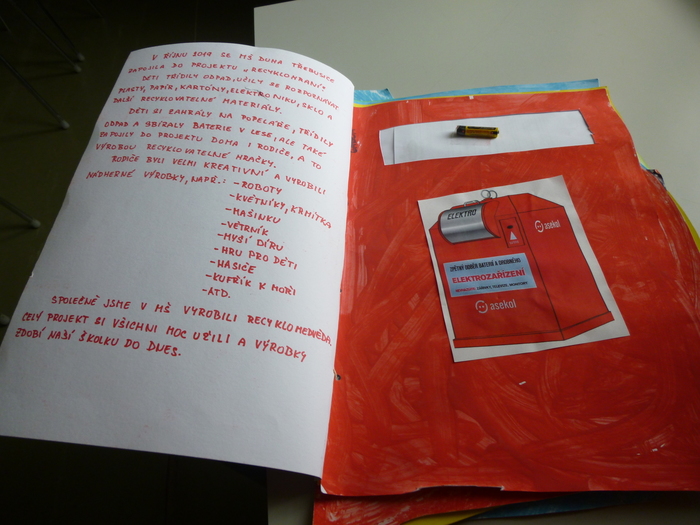 V ŘÍJNU 2019 SE MŠ DUHA TŘEBUSICE
ZAPOJILA DO PROJEKTU „RECYKLOHRANÍ".
DĚTI TŘÍDILY ODPAD, UČILY SE ROZPOZNÁVAT
PLASTY, PAPÍR, KARTONY, ELEKTRONIKU, SKLO A
DALŠÍ RECYKLOVATELNÉ MATERIÁLY.
DĚTI SI ZAHRÁLY NA POPELÁŘE, TŘÍDILY
ODPAD A SBÍRALY BATERIE V LESE, ALE TAKÉ
ZAPOJILY DO PROJEKTU DOMA I RODIČE, A TO
VÝROBOU RECYKLOVATELNÉ HRAČKY.
RODIČE BYLI VELMI KREATIVNÍ A VYROBILI
NÁDHERNÉ VÝROBKY, NAPŘ.: -ROBOTY
-KVĚTNÍKY, KRMÍTKA
-MAŠINKU
-VĚTRNÍK
-MYŠÍ DÍRU
-HRU PRO DĚTI
-HASIČE
-KUFŘÍK K MOŘI
-ATD.
SPOLEČNĚ JSME V MŠ VYROBILI RECYKLOMEDVĚDA.
CELÝ PROJEKT SI VŠICHNI MOC UŽILI A VÝROBKY
ZDOBÍ NAŠÍ ŠKOLKU DO DNES.
ELEKTRO
asekol
ZPĚTNÝ ODBĚR BATERIÍ A DROBNÉHO
ELEKTROZAŘÍZENÍ
asekol